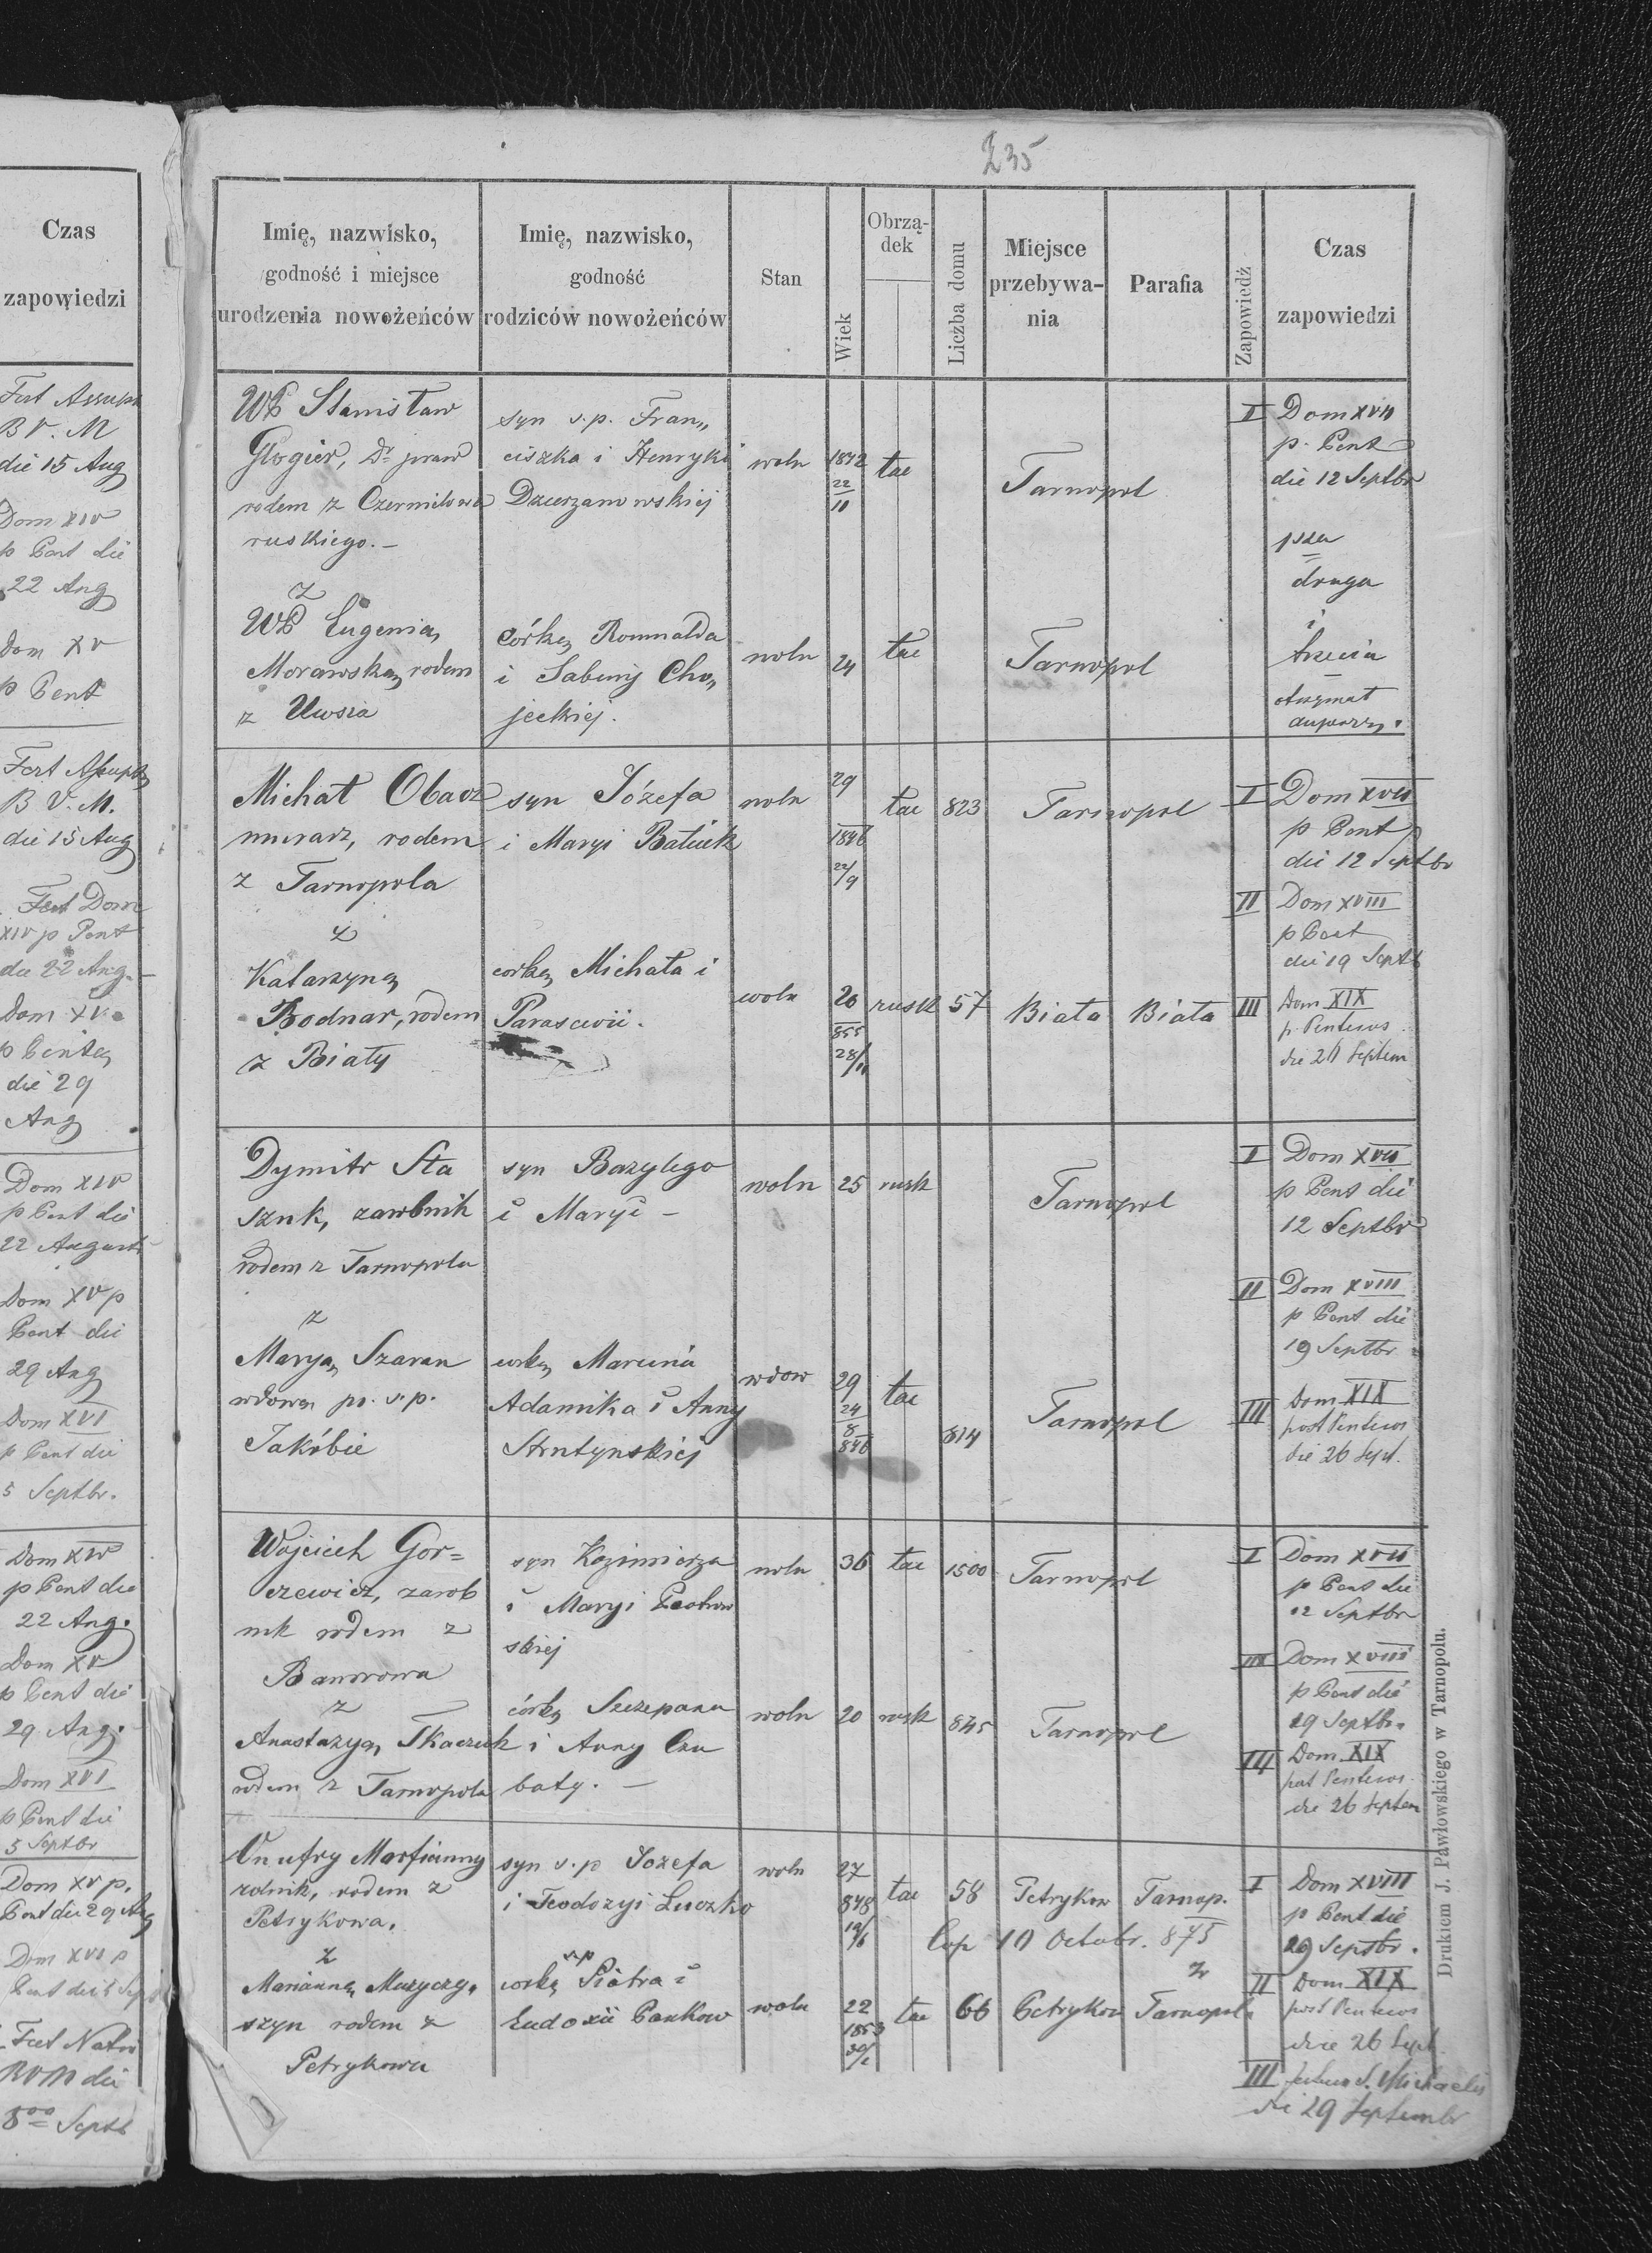 Czas
zapowiedzi
B V. M
die 15 Aug
Dom XIV
p Pent die
22 Aug
Dom XV
p Pent
B V. M.
die 15 Aug
Fest Dom
XIV p Pent
die 22 Aug.
Dom XV
p Pente
die 29
Aug
Dom XIV
p Pent die
22 Augusti
Dom XV p
Pent die
29 Aug
Dom XVI
p Pent die
5 Septbr.
Dom XIV
p Pent die
22 Aug.
Dom XV
p Pent die
29 Aug.
Dom XVI
p Pent die
5 Septbr
Dom XV p.
Pent die 29 Aug
Dom XVI p
Pent die 5 Sept
Fest Nativ
BVM die
8 Septb
235
Imię, nazwisko,
godność i miejsce
urodzenia nowożeńców
Imię, nazwisko,
godność
rodziców nowożeńców
Stan
Wiek
Obrzą-
dek
Liczba domu
Miejsce
przebywa-
nia
Parafia
Zapowiedź
Czas
zapowiedzi
WP Stanisław syn ś.p. Fran„ I Dom XVII
Glogier, Dr praw ciszka i Henryki woln 1842 łac Tarnopol p. Pent
rodem z Dzierzanowskiej 22/10 die 12 Septbr
ruskiego.—
z
druga
i
trzecia
WP Eugenią córką Romualda woln 24 łac Tarnopol
Morawską, rodem i Sabiny Cho„
z Uwsia jeckiej.
Michał Obacz syn Józefa woln 29 łac 823 Tarnopol I Dom XVII
murarz, rodem i Maryi 1846 p Pent
z Tarnopola 22/9 die 12 Septbr
z II Dom XVIII
p Pent
die 19 Septb
Katarzyną córką Michała i woln 20 rusk 57 Biała Biała III Dom XIX
Bodnar, rodem Parascevii. 855 p. Pentecos
z Biały 28/11 die 26 Septem
Dymitr Sta syn Bazylego woln 25 rusk Tarnopol I Dom XVII
szuk, zarobnik i Maryi — p Pent die
rodem z Tarnopola 12 Septbr
z II Dom XVIII
p Pent die
19 Septbr
Maryą Szaran córką Marcina wdow 29 łac Tarnopol III Dom XIX
wdową po ś.p. Adamika i Anny 24/8 814 post Pentecos
Jakóbie Strutynskiej 846 die 26 Sept.
Wojciech Gor= syn Kazimierza woln 36 łac 1500 Tarnopol I Dom XVII
czewicz, zarob i Maryi p Pent die
nik rodem z skiej 12 Septbr
Baworowa III Dom XVIII
z p Pent die
19 Septbr
Anastazyą Tkaczuk córką Szczepana woln 20 rusk 845 Tarnopol III Dom XIX
rodem z Tarnopola i Anny Czu post Pentecos
baty. — die 26 Septem
Onufry syn ś.p Józefa woln 27 łac 58 Petryków Tarnop. I Dom XVIII
rolnik, rodem z i Teodozyi Luczko 848 p Pent die
Petrykowa. 12/6 Cop 10 Octobr. 875 19 Septbr.
z
Marianną córką ś.p Piotra i woln 22 łac 66 Petryków Tarnopol II Dom XIX
szyn rodem z Eudoxii Pankow 1853 post Pentecos
Petrykowa 30/1 die 26 Sept.
III S. Michaelis
die 29 Septembr
Drukiem J. Pawłowskiego w Tarnopolu.